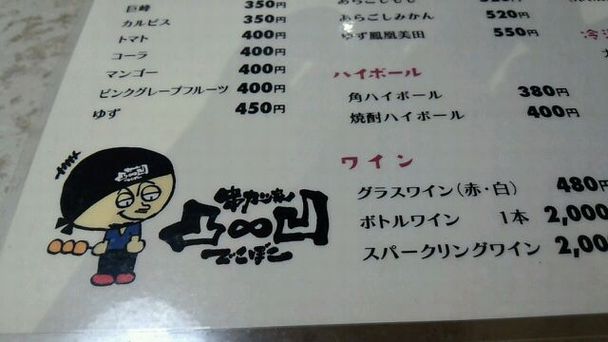 巨峰 350円
カルピス 350円
トマト 400円
コーラ 400円
マンゴー 400円
ピンクグレープフルーツ 400円
ゆず 450円
あらごしみかん 520円
ゆず鳳凰美田 550円
ハイボール
角ハイボール 380円
焼酎ハイボール 400円
ワイン
グラスワイン(赤・白) 480円
ボトルワイン 1本 2,000
スパークリングワイン 2,00
串カツ
凸∞凹
でこぼこ